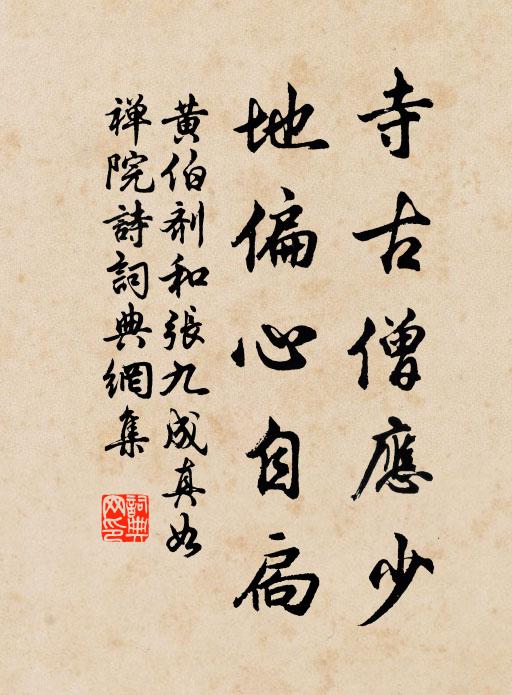 寺古僧應少
地偏心自扃
黄伯剂和張九成真如
禅院詩詞典網集
詞典网印